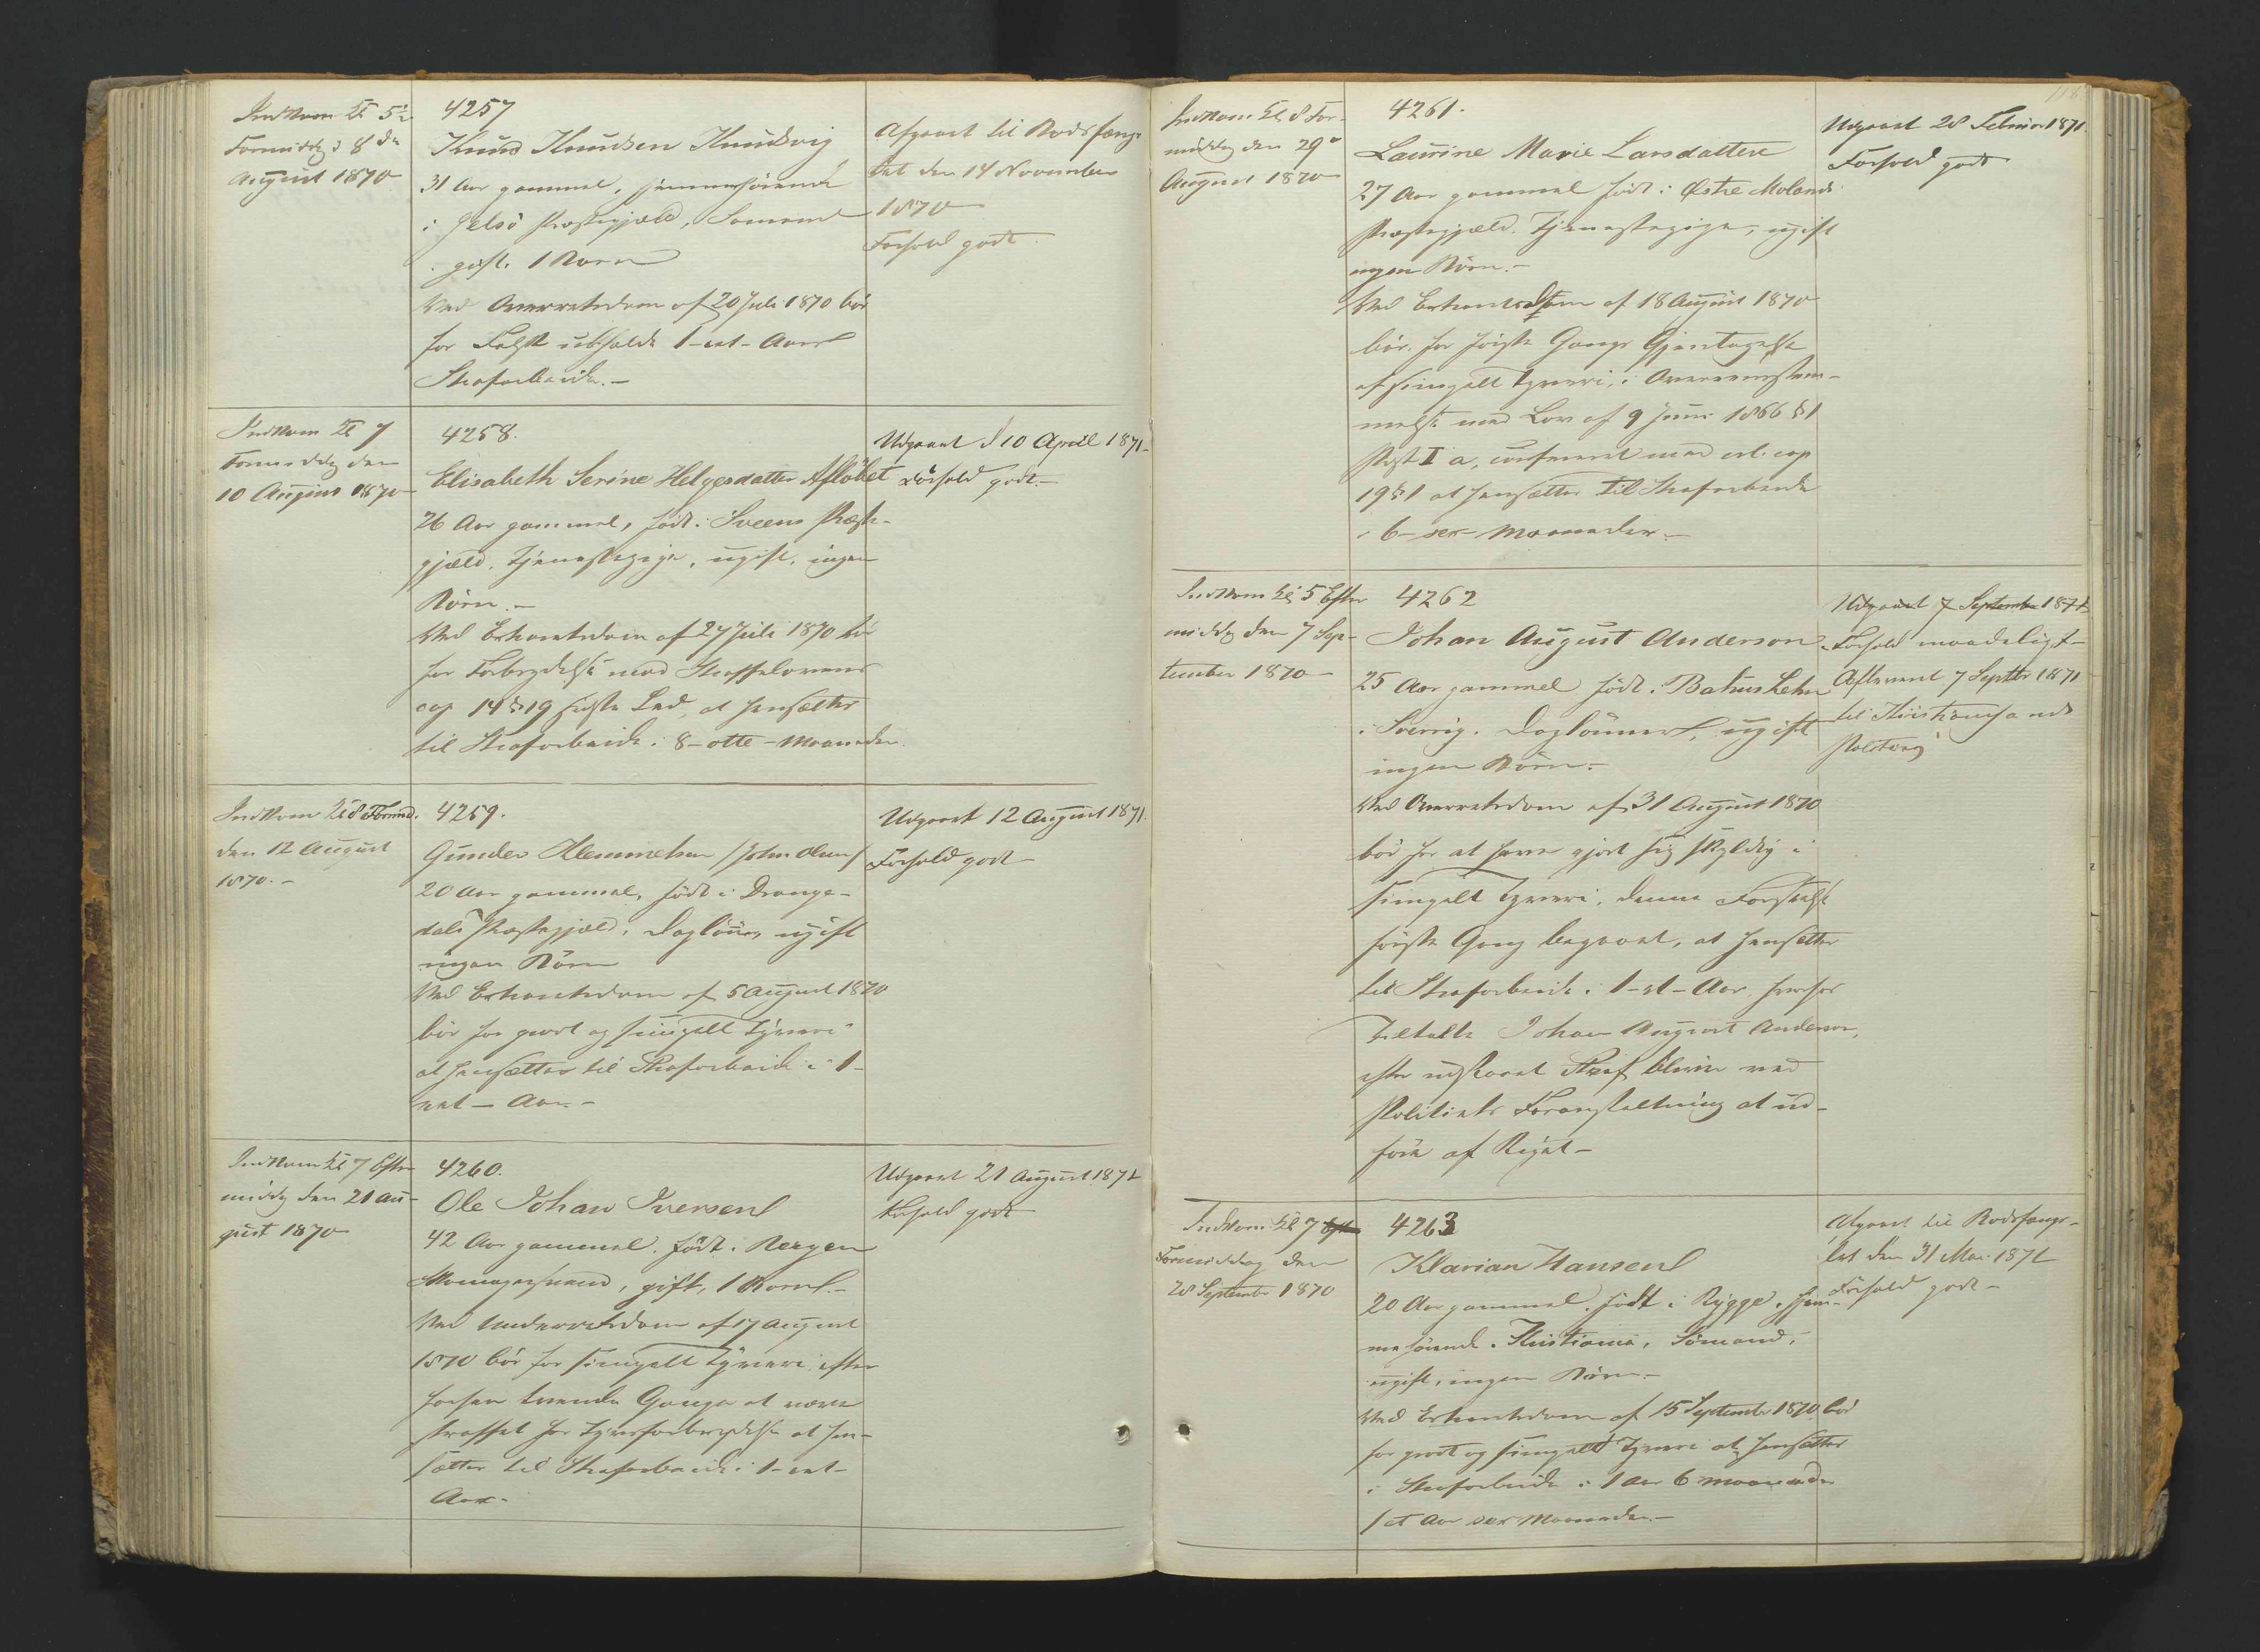 Indkom Kl 5½
Formiddg d 8de
August 1870
4257
Knud Knudsen Knudsvig
31 Aar gammel, hjemmehørende
i Jelsø Præstegjæld, Sømand
gift. 1 Barn
Ved Overretsdom af 20 Juli 1870 bør
for Falsk udholde 1-et-Aars
Strafarbeide.-
Afgaaet til Bodsfæng-
let den 14 November
1870
Forhold godt.
Indkom Kl 7
Formiddg den
10 August 1870
4258.
Elisabeth Serine Helgesdatter Afløbet
26 Aar gammel, født i Sveens Præste-
gjæld. Tjenestepige, ugift, ingen
Børn.-
Ved Extraretsdom af 27 Juli 1870 bør
for Forbrydelse mod Straffelovens
cap 14 § 19 sidste Led, at hensættes
til Strafarbeide i 8-otte-Maaneder
Udgaaet d 10 April 1871-
Forhold godt.-
Indkom Kl 8 Formd.
den 12 August
1870.-
4259.
Gunder Klemmetsen /John Olsen/
20 Aar gammel, født i Drange-
dals Præstegjæld, Dagløner, ugift
ingen Børn
Ved Extraretsdom af 5 August 1870
bør for grovt og simpelt Tyveri
at hensættes til Strafarbeide i 1-
eet-Aar.-
Udgaaet 12 August 1871.
Forhold godt-
Indkom Kl 7 Efter
middg den 21 Au-
gust 1870
4260.
Ole Johan Iversen
42 Aar gammel. født i Bergen
gift, 1 Barn.-
Ved Underretsdom af 17 August
1870 bør for simpelt Tyveri, efter
forhen tvende Gange at være
straffet for Tyvsforbrydelse at hen-
sættes til Strafarbeide i 1-eet-
Aar.
Udgaaet 21 August 1871
Forhold godt
118
Indkom Kl 8 For-
middg den 29de
August 1870
4261.
Laurine Marie Larsdatter
27 Aar gammel født i Østre Molands
Præstegjæld. Tjenestepige, ugift
ingen Børn.-
Ved Extraretsdom af 18 August 1870
bør for første Gangs Gjentagelse
af simpelt Tyveri, i Overeensstem-
melse med Lov af 9 Juni 1866 § 1
Post I a, confereret med crl. cap
19 § 1 at hensættes til Strafarbeide
i 6-sex-Maaneder.-
Udgaaet 28 Februar 1871.
Forhold godt
Indkom Kl 5 Efter
middg den 7 Sep-
tember 1870-
4262
Johan August Anderson
25 Aar gammel født i Bahus Lehn
i Sverrig. Daglønner, ugift
ingen Børn.-
Ved Overretsdom af 31 August 1870
bør for at have gjort sig skyldig i
simpelt Tyveri, denne Forseelse
første Gang begaaet, at hensættes
til Strafarbeide i 1-et-Aar, hvorhos
Tiltalte Johan August Anderson,
efter udstaaet Straf bliver ved
Politiets Foranstaltning at ud-
føre af Riget-
Udgaaet 7 September 1871
Forhold maadeligt-
Afleveret 7 Septbr 1871
til Kristiansands
Politi
Indkom Kl 7
Formiddag den
28 Septembr 1870
4263
Klarian Hansen
20 Aar gammel. født i Rygge, hjem-
mehørende i Kristiania, Sømand,
ugift, ingen Børn.-
Ved Extraretsdom af 15 Septembr 1870 bør
for grovt og simpelt Tyveri at hensættes
i Strafarbeide i 1 Aar 6 Maaneder
/et Aar sex Maaneder.-
Afgaaet til Bodsfæng-
let den 31 Mai 1871
Forhold godt-